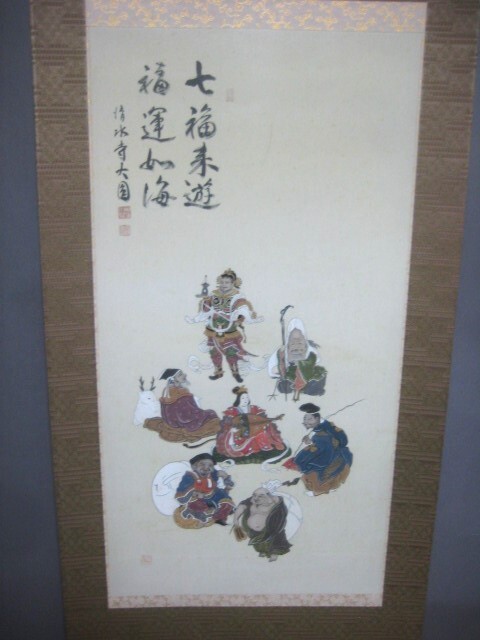 七福来遊
福運如海
清水寺大圓